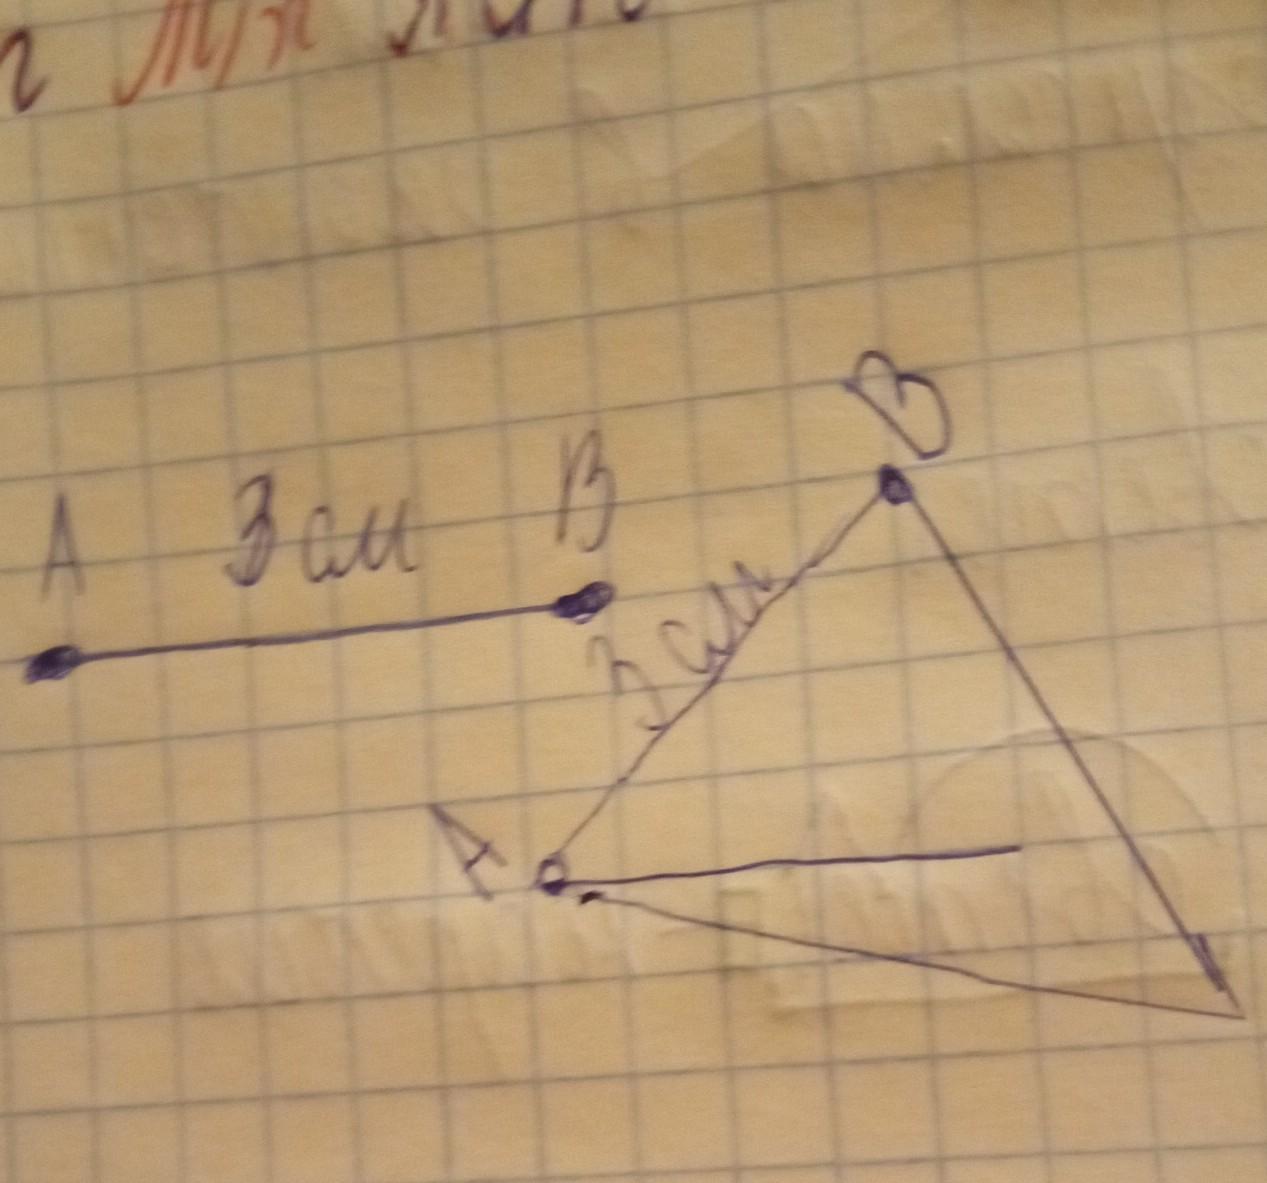 A 3 см B
B
3 см
A